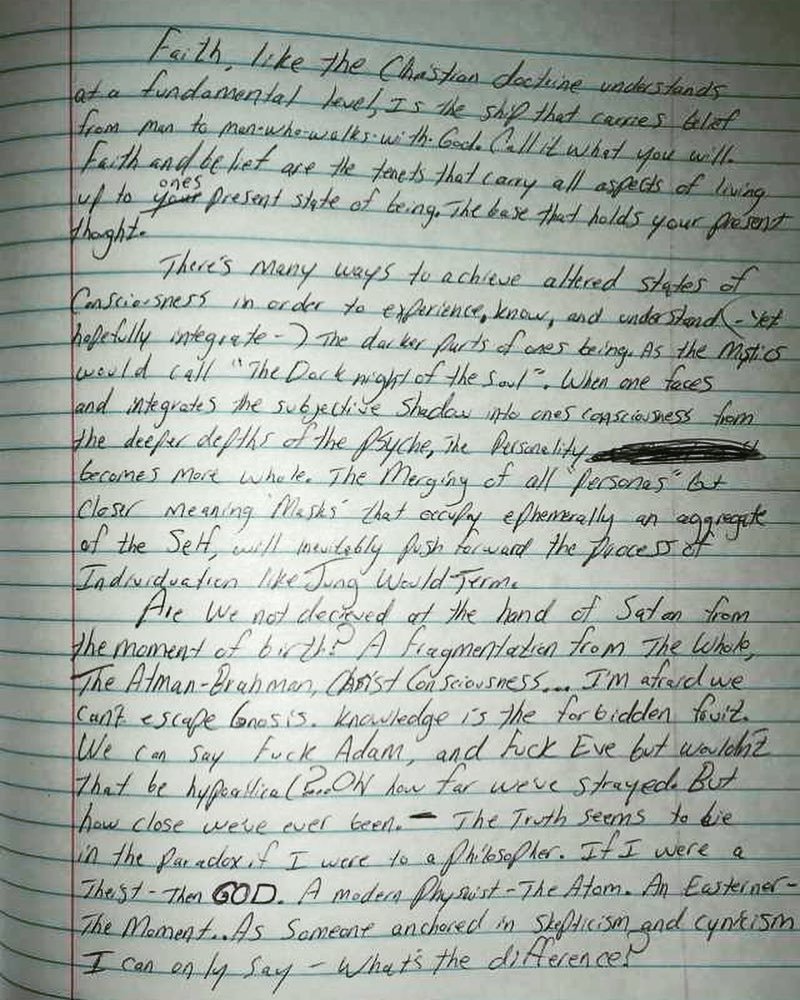 Faith, like the Christian doctrine understands
at a fundamental level, Is the ship that carries belief
from man to man-who-walks-with-God. Call it what you will.
Faith and belief are the tenets that carry all aspects of living
up to ones present state of being. The base that holds your present
thought.
There's many ways to achieve altered states of
Consciousness in order to experience, know, and understand (-Yet
hopefully integrate-) The darker parts of ones being. As the Mystics
would call "The Dark night of the soul". When one faces
and integrates the subjective Shadow into ones consciousness from
the deeper depths of the Psyche, The Personality
becomes more whole. The Merging of all "Personas" but
closer meaning 'Masks' that occupy ephemerally an aggregate
of the Self, will inevitably push forward the process of
Individuation like Jung Would Term.
Are We not decieved at the hand of Satan from
the moment of birth? A fragmentation from The Whole,
The Atman-Brahman, Christ Consciousness... I'm afraid we
can't escape Gnosis. Knowledge is the forbidden fruit.
We can say Fuck Adam, and Fuck Eve but wouldn't
That be hypocritical?..OH how far we've strayed. But
how close we've ever been. - The Truth seems to lie
in the paradox if I were to a philosopher. If I were a
Theist - Then GOD. A modern Physist - The Atom. An Easterner -
The Moment.. As Someone anchored in skepticism and cynicism
I can only say - What's the difference?